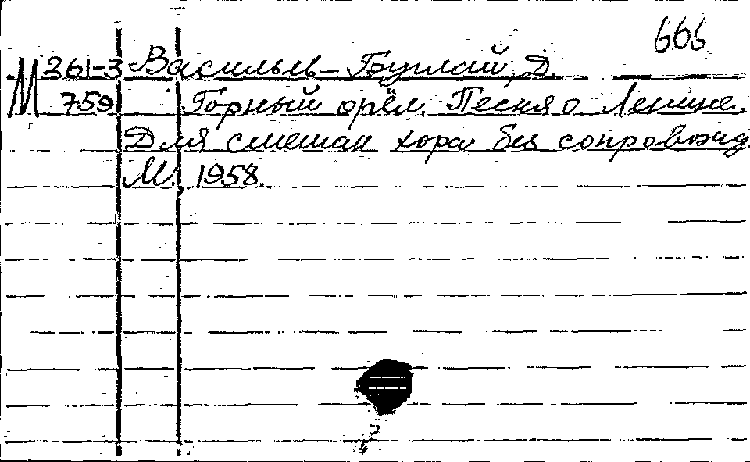 666
М 261-3 Васильев-Буглай, Д.
759 Горный орёл. Песня о Ленине.
Для смешан хора без сопровожд.
М., 1958.